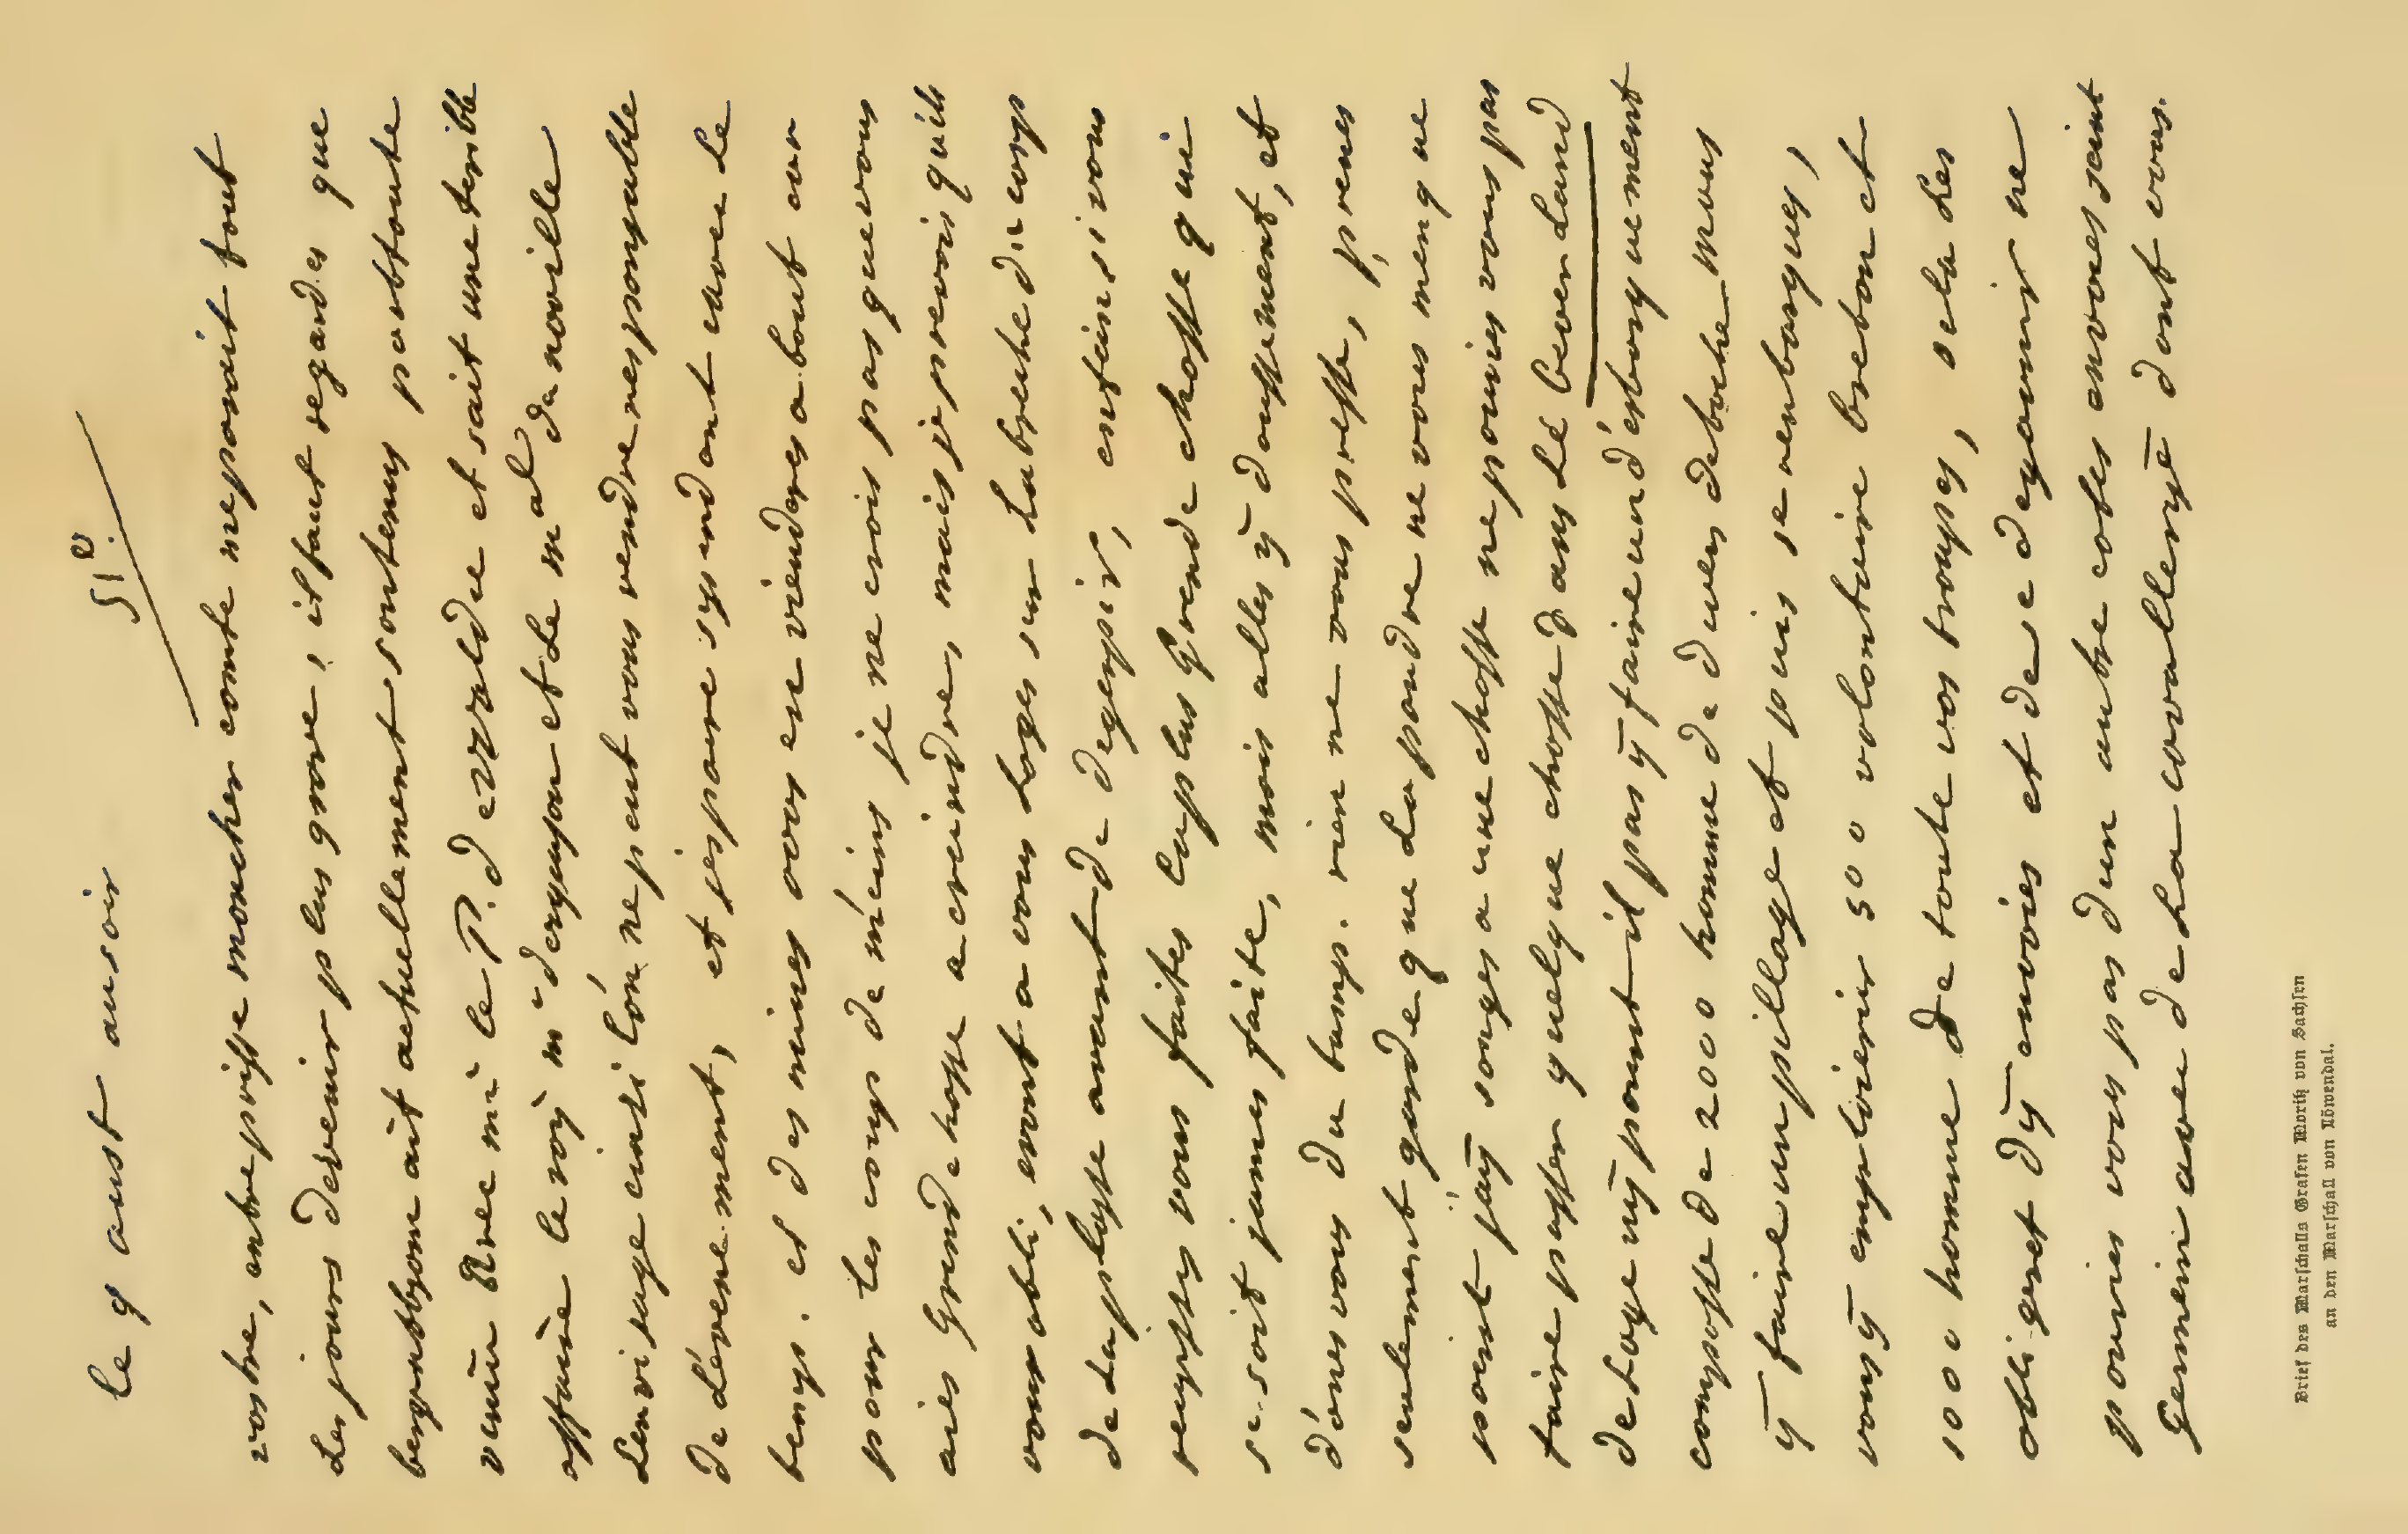 le 9 aust ausoir
51e.
vostre, antreprisse moncher comte neporoit tout
Les jours devenir plus grave, il faut regarder que
bergobtzom ait actuellement soutenus partoute
venu Ree mi le P. d evvaldee et sait une terible
affaire le roy m'dergenson et le mal de noaille
Lenvisage einsi lón ne peut vous rendre responsable
De Lévenement, et jespaire sependant avec le
temps. et des mines vous en viendres a bout car
pour les coups de mains je ne crois pas que vous
aies Grende chosse a creindre, mais je prevois quils
vous obli, eront a vous loger sur La breche du corps
de La plasse avant de degerpir, enfein si vous
reussises vous faites la plus Grende chosse qui
se soit james faite, mais alles ÿ doussement, et
dónes vous du tamps. rien ne vous presse, prenes
seulement garde que La poudre ne vous menque
point jaÿ songes a une chosse ne pouries vous pas
faire passer quelque chosse D ans Le beverland
Detoge nÿ pourt il pas ÿ faire un d'enbarquement
composse De 2000 homme de d uvers detache mens
ÿ faire un pillage et puis se renbarquer,
vous ÿ emploierir 500 volontaire breton et
100 homme De toute vos troupes, sela Les
obli geret dÿ envoies et de se degarnir ne
pouries vous pas dun autre cotes anvoies saint
Gemein avec de La cavallerye dont vous.
Brief des Marschalls Grafen Moritz von Sachsen
an den Marschall von Löwendal.